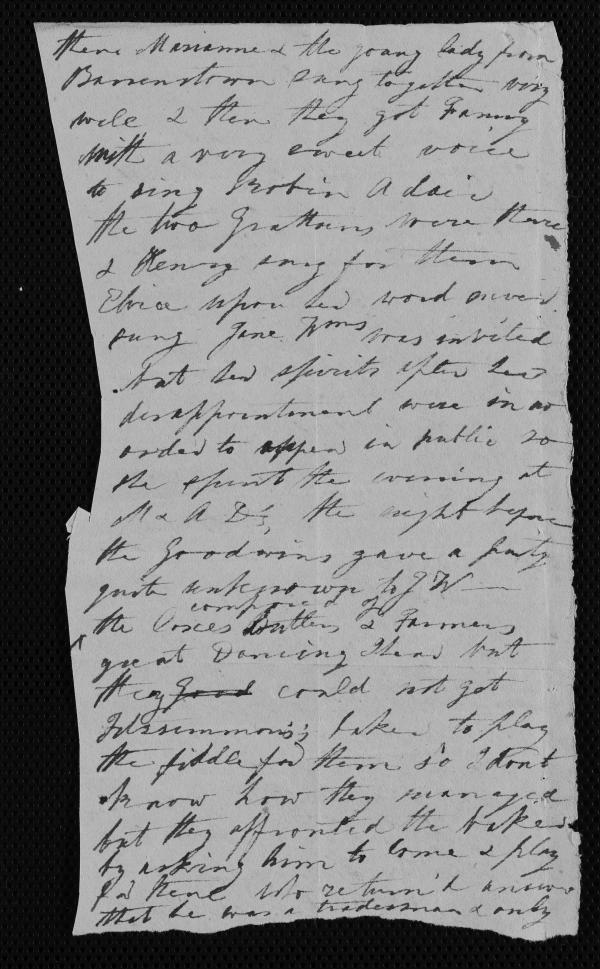 there Marianne & the young lady from
Barrenstown sung together very
well & then they got Fanny
with a very sweet voice
to sing Robin Adair
the two Grattans were there
& Henry sung for them
Eliza upon her word never
sung Jane Wms was invited
but her spirits after her
disappointment were in no
order to appear in public so
she spent the evening at
M & A D's, the night before
the Goodwins gave a party
quite unknown to J W —
composed of
the Coxes Butlers & Farmers
great Dancing there but
they good could not get
Fitssimmons's baker to play
the fiddle for them so I dont
know how they managed
but they affronted the baker
by asking him to come & play
for them who return'd answer
that he was a tradesman & only